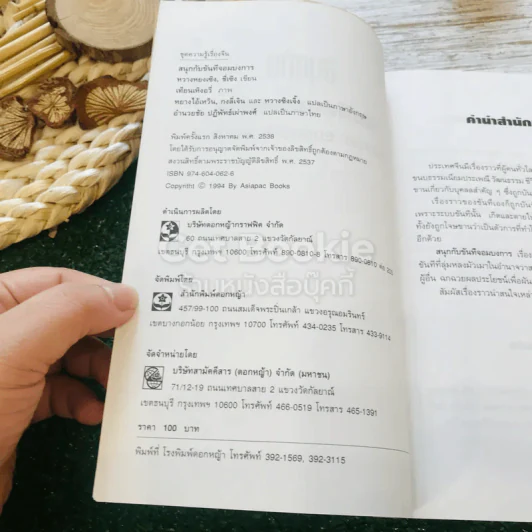 ชุดความรู้เรื่องจีน
สนุกกับขันทีจอมบงการ
หวางหยงเซิง, ชีเซิง เขียน
เทียนเหิงอวี้ ภาพ
หยางไอ้เหวิน, กงลี่เจิน และ หวางซิงเจิ้ง แปลเป็นภาษาอังกฤษ
อำนวยชัย ปฏิพัทธ์เผ่าพงศ์ แปลเป็นภาษาไทย
พิมพ์ครั้งแรก สิงหาคม พ.ศ. 2539
โดยได้รับการอนุญาตจัดพิมพ์จากเจ้าของลิขสิทธิ์ถูกต้องตามกฎหมาย
สงวนสิทธิ์ตามพระราชบัญญัติลิขสิทธิ์ พ.ศ. 2537
ISBN 974-604-062-6
Copyright © 1994 By Asiapac Books
ดำเนินการผลิตโดย
บริษัทดอกหญ้ากราฟฟิค จำกัด
60 ถนนเทศบาลสาย 2 แขวงวัดกัลยาณ์
เขตธนบุรี กรุงเทพฯ 10600 โทรศัพท์ 890-0810-6 โทรสาร
ร้านหนังสือบุ๊คกี้
จัดพิมพ์โดย
สำนักพิมพ์ดอกหญ้า
457/99-100 ถนนสมเด็จพระปิ่นเกล้า แขวงอรุณอมรินทร์
เขตบางกอกน้อย กรุงเทพฯ 10700 โทรศัพท์ 434-0235 โทรสาร 433-9114
จัดจำหน่ายโดย
บริษัทสามัคคีสาร (ดอกหญ้า) จำกัด (มหาชน)
71/12-19 ถนนเทศบาลสาย 2 แขวงวัดกัลยาณ์
เขตธนบุรี กรุงเทพฯ 10600 โทรศัพท์ 466-0519 โทรสาร 465-1391
ราคา 100 บาท
พิมพ์ที่ โรงพิมพ์ดอกหญ้า โทรศัพท์ 392-1569, 392-3115
คำนำสำนัก
ประเทศจีนมีเรื่องราวที่ผู้คนทั่วโ
ขนบธรรมเนียมประเพณี วัฒนธรรม
ขานเกี่ยวกับบุคคลสำคัญ ๆ ซึ่งถูกบัน
เรื่องราวของขันทีเองก็ถูกบัน
เพราะระบบขันทีนั้น เกิดและตายไ
ทั้งยังถูกโจษขานว่าเป็นตัวการที่ทำ
อีกด้วย
สนุกกับขันทีจอมบงการ เรื่อง
ขันทีที่ลุ่มหลงมัวเมาในอำนาจวาส
ผู้อื่น ฉกฉวยผลประโยชน์เพื่อผัน
สัมผัสเรื่องราวน่าสนใจเห